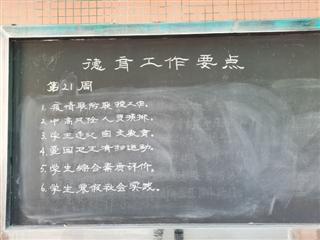 德育工作要点
第21周
1.疫情联防联控工作。
2.中高风险人员摸排。
3.学生违纪 教育。
4.爱国卫生清扫运动。
5.学生综合素质评价。
6.学生寒假社会实践。